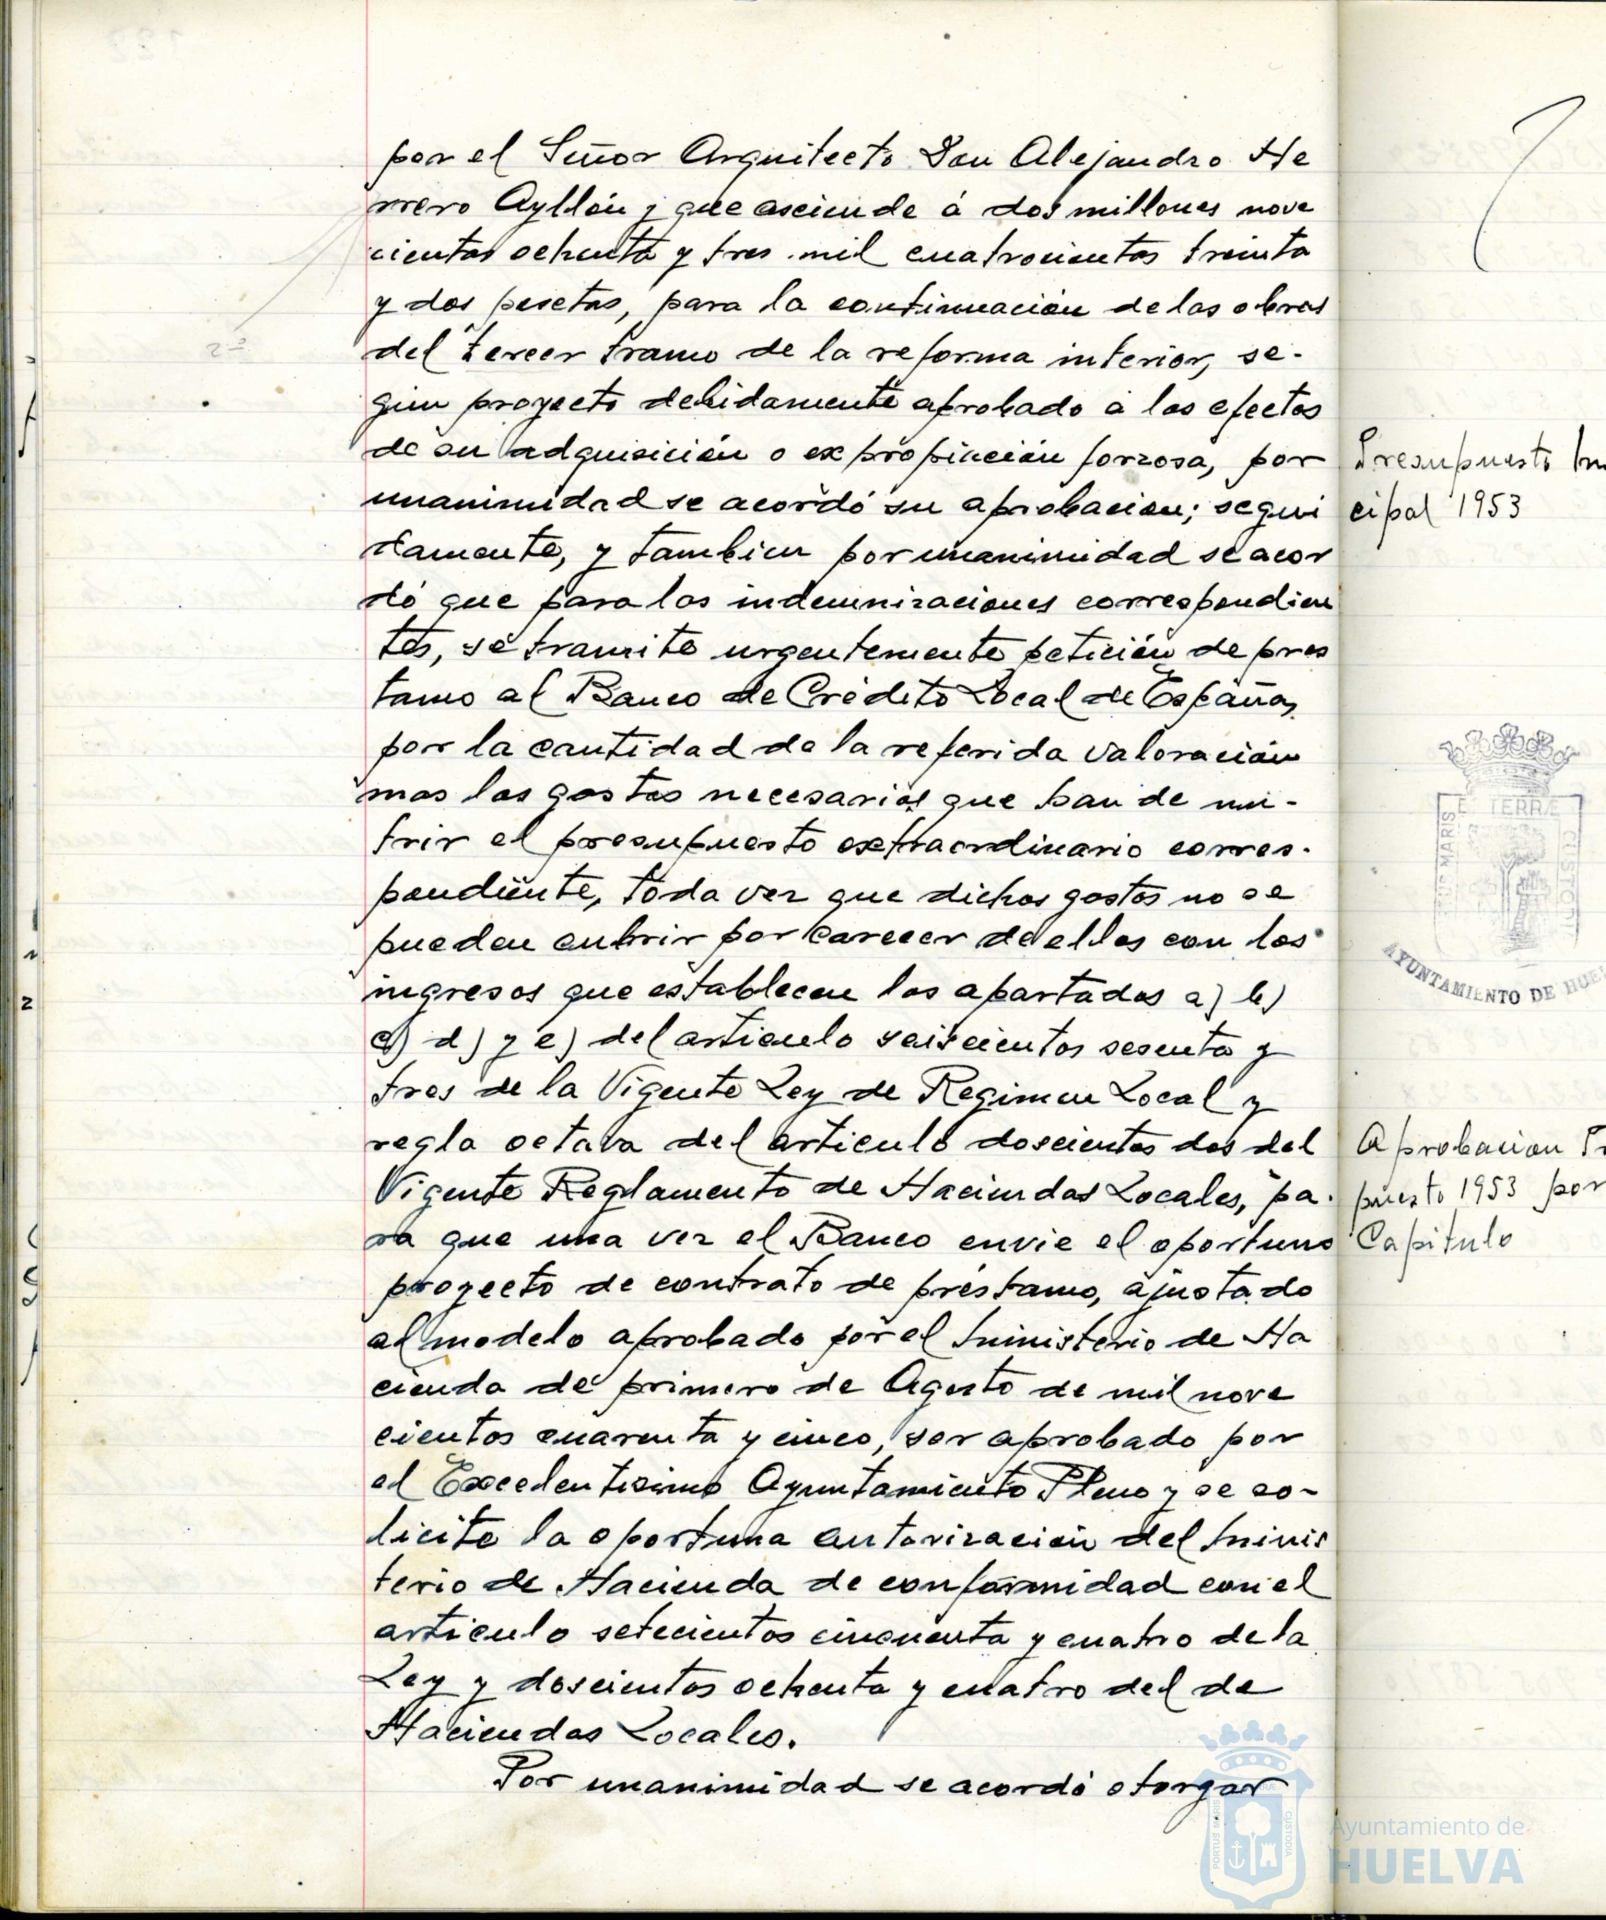 por el Señor Arquitecto Don Alejandro He
rrero Ayllón y que asciende á dos millones nove
cientas ochenta y tres mil cuatrocientas treinta
y dos pesetas, para la continuación de las obras
del tercer tramo de la reforma interior, se-
gun proyecto debidamente aprobado a los efectos
de su adquisición o expropiación forzosa, por
unanimidad se acordó su aprobacion; segui
damente, y tambien por unanimidad se acor
dó que para las indemnizaciones correspondien
tes, se tramite urgentemente petición de pres
tamo al Banco de Crédito Local de España,
por la cantidad de la referida valoración
mas los gastos necesarios que han de nu-
trir el presupuesto extraordinario corres-
pondiente, toda vez que dichos gastos no se
pueden cubrir por carecer de ellos con los
ingresos que establecen los apartados a) b)
c) d) y e) del articulo seiscientos sesenta y
tres de la Vigente Ley de Regimen Local y
regla octava del articulo doscientos dos del
Vigente Reglamento de Haciendas Locales, pa-
ra que una vez el Banco envie el oportuno
proyecto de contrato de préstamo, ajustado
al modelo aprobado por el Ministerio de Ha
cienda de primero de Agosto de mil nove
cientos cuarenta y cinco, ser aprobado por
el Excelentisimo Ayuntamiento Pleno y se so-
licite la oportuna autorización del Minis
terio de Hacienda de conformidad con el
articulo setecientos cincuenta y cuatro de la
Ley y doscientos ochenta y cuatro del de
Haciendas Locales.
Por unanimidad se acordó otorgar
2º
Presupuesto
cipal 1953
MARIS
TERRÆ
CUSTODI
AYUNTAMIENTO DE HUE
Aprobacion
puesto 1953 por
Capitulo
PORTUS MARIS
CUSTODIA
Ayuntamiento de
HUELVA